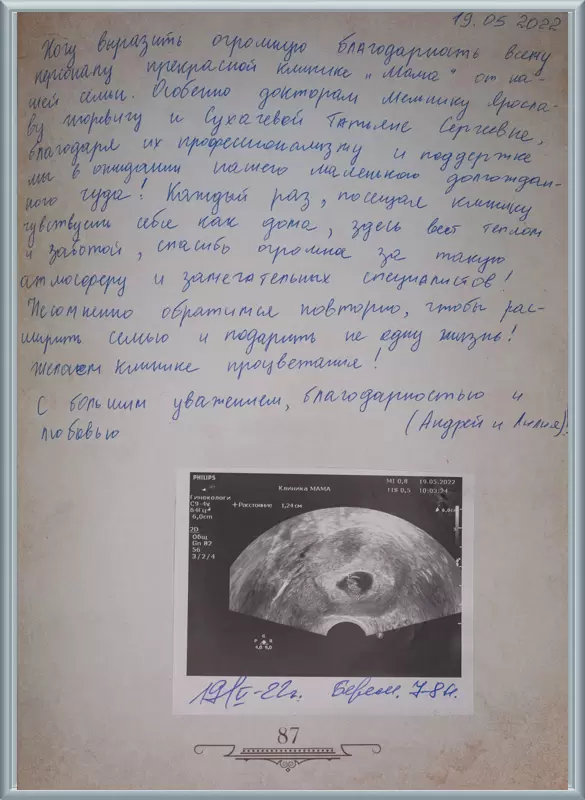 19.05 2022
Хочу выразить огромную благодарность всему
персоналу прекрасной клинике „Мама" от на-
шей семьи. Особенно докторам Мельнику Яросла-
ву Игоревичу и Сухачевой Татьяне Сергеевне,
благодаря их профессионализму и поддержке
мы в ожидании нашего маленького долгождан-
ного чуда! Каждый раз, посещая клинику
чувствуешь себя как дома, здесь веет теплом
и заботой, спасибо огромна за такую
атмосферу и замечательных специалистов!
Несомненно обратимся повторно, чтобы рас-
ширить семью и подарить не одну жизнь!
желаем клинике процветания!
С большим уважением, благодарностью и
любовью (Андрей и Лилия)!
PHILIPS
Клиника МАМА
MI 0,8 19.05.2022
TIS 0,5 10:03:24
Гинекологи
C9-4v
64Гц
6,0cm
+ Расстояние 1,24 см
2D
Общ
Gn 82
56
3/2/4
19/V-22г. Берем. 7-8н.
87